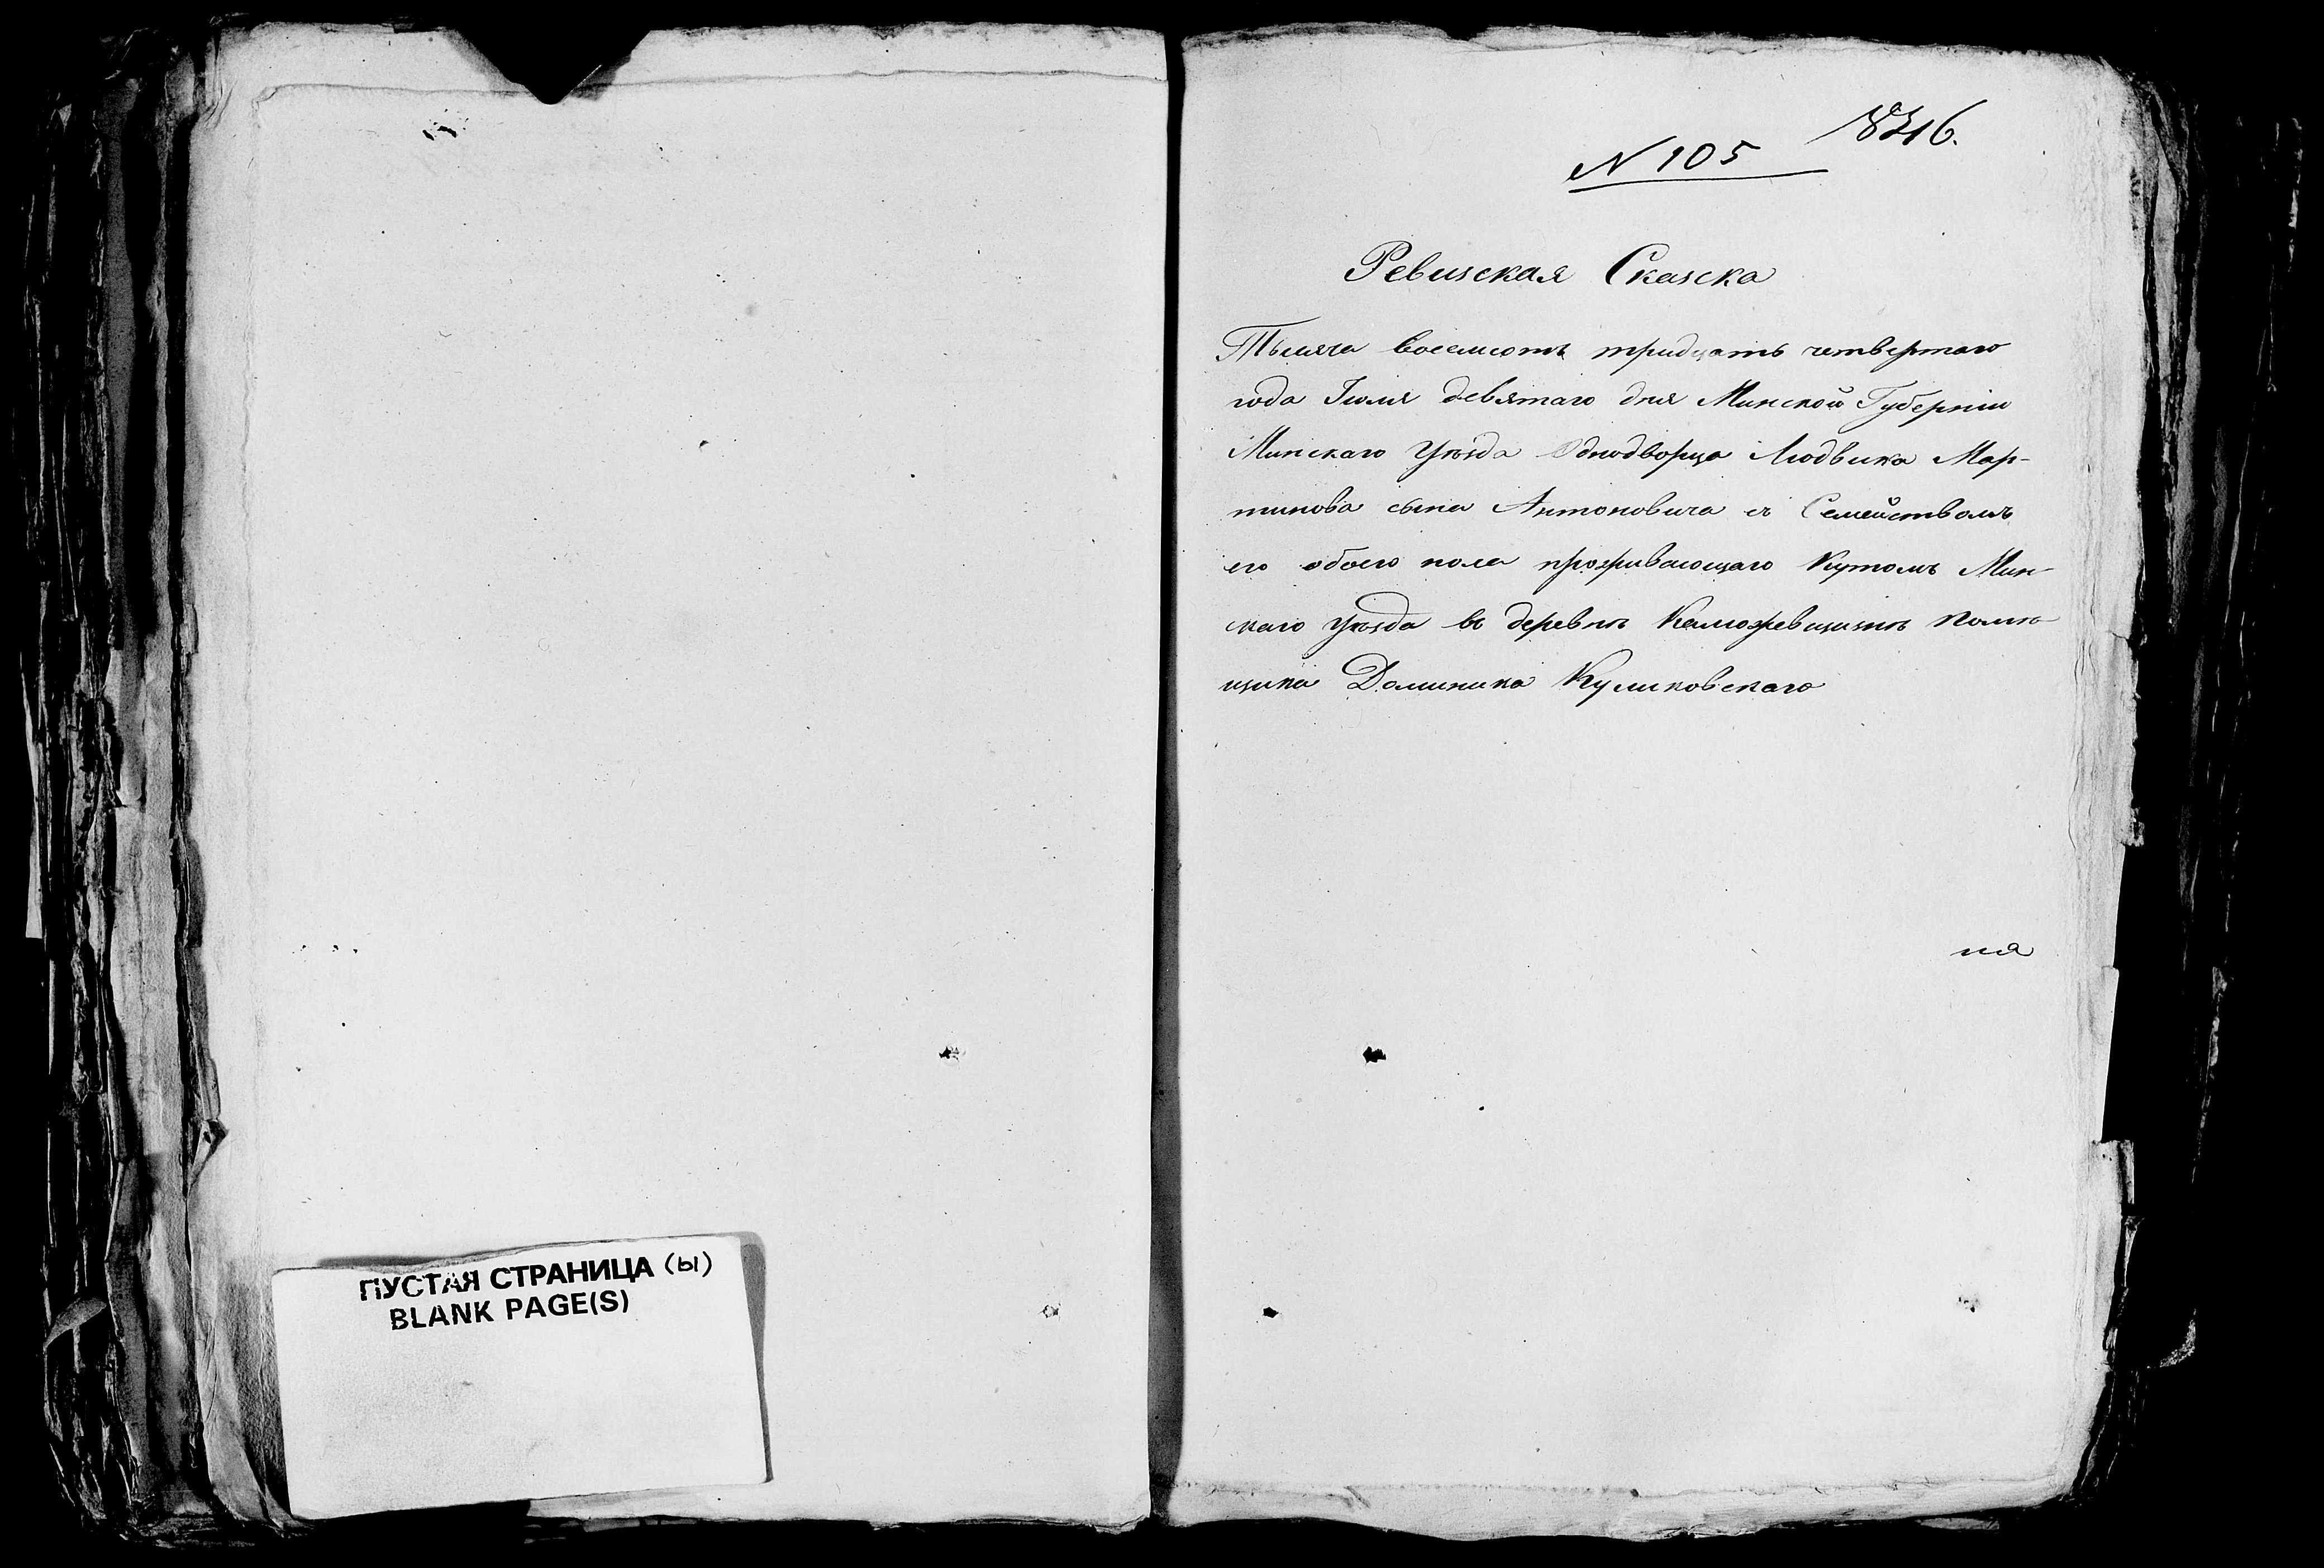 ПУСТАЯ СТРАНИЦА (ы)
BLANK PAGE(S)
N 105
Ревизская Сказска
Тысяча восемсотъ тридцать четвертаго
года Іюля девятаго дня Минской Губерніи
Минскаго Уѣзда Однодворца Людвика Мар-
тинова сына Антоновича съ Семействомъ
его обоего пола проживающаго Кутомъ Мин-
скаго Уѣзда въ деревнѣ помѣ-
щика Доминика Куликовскаго
ня